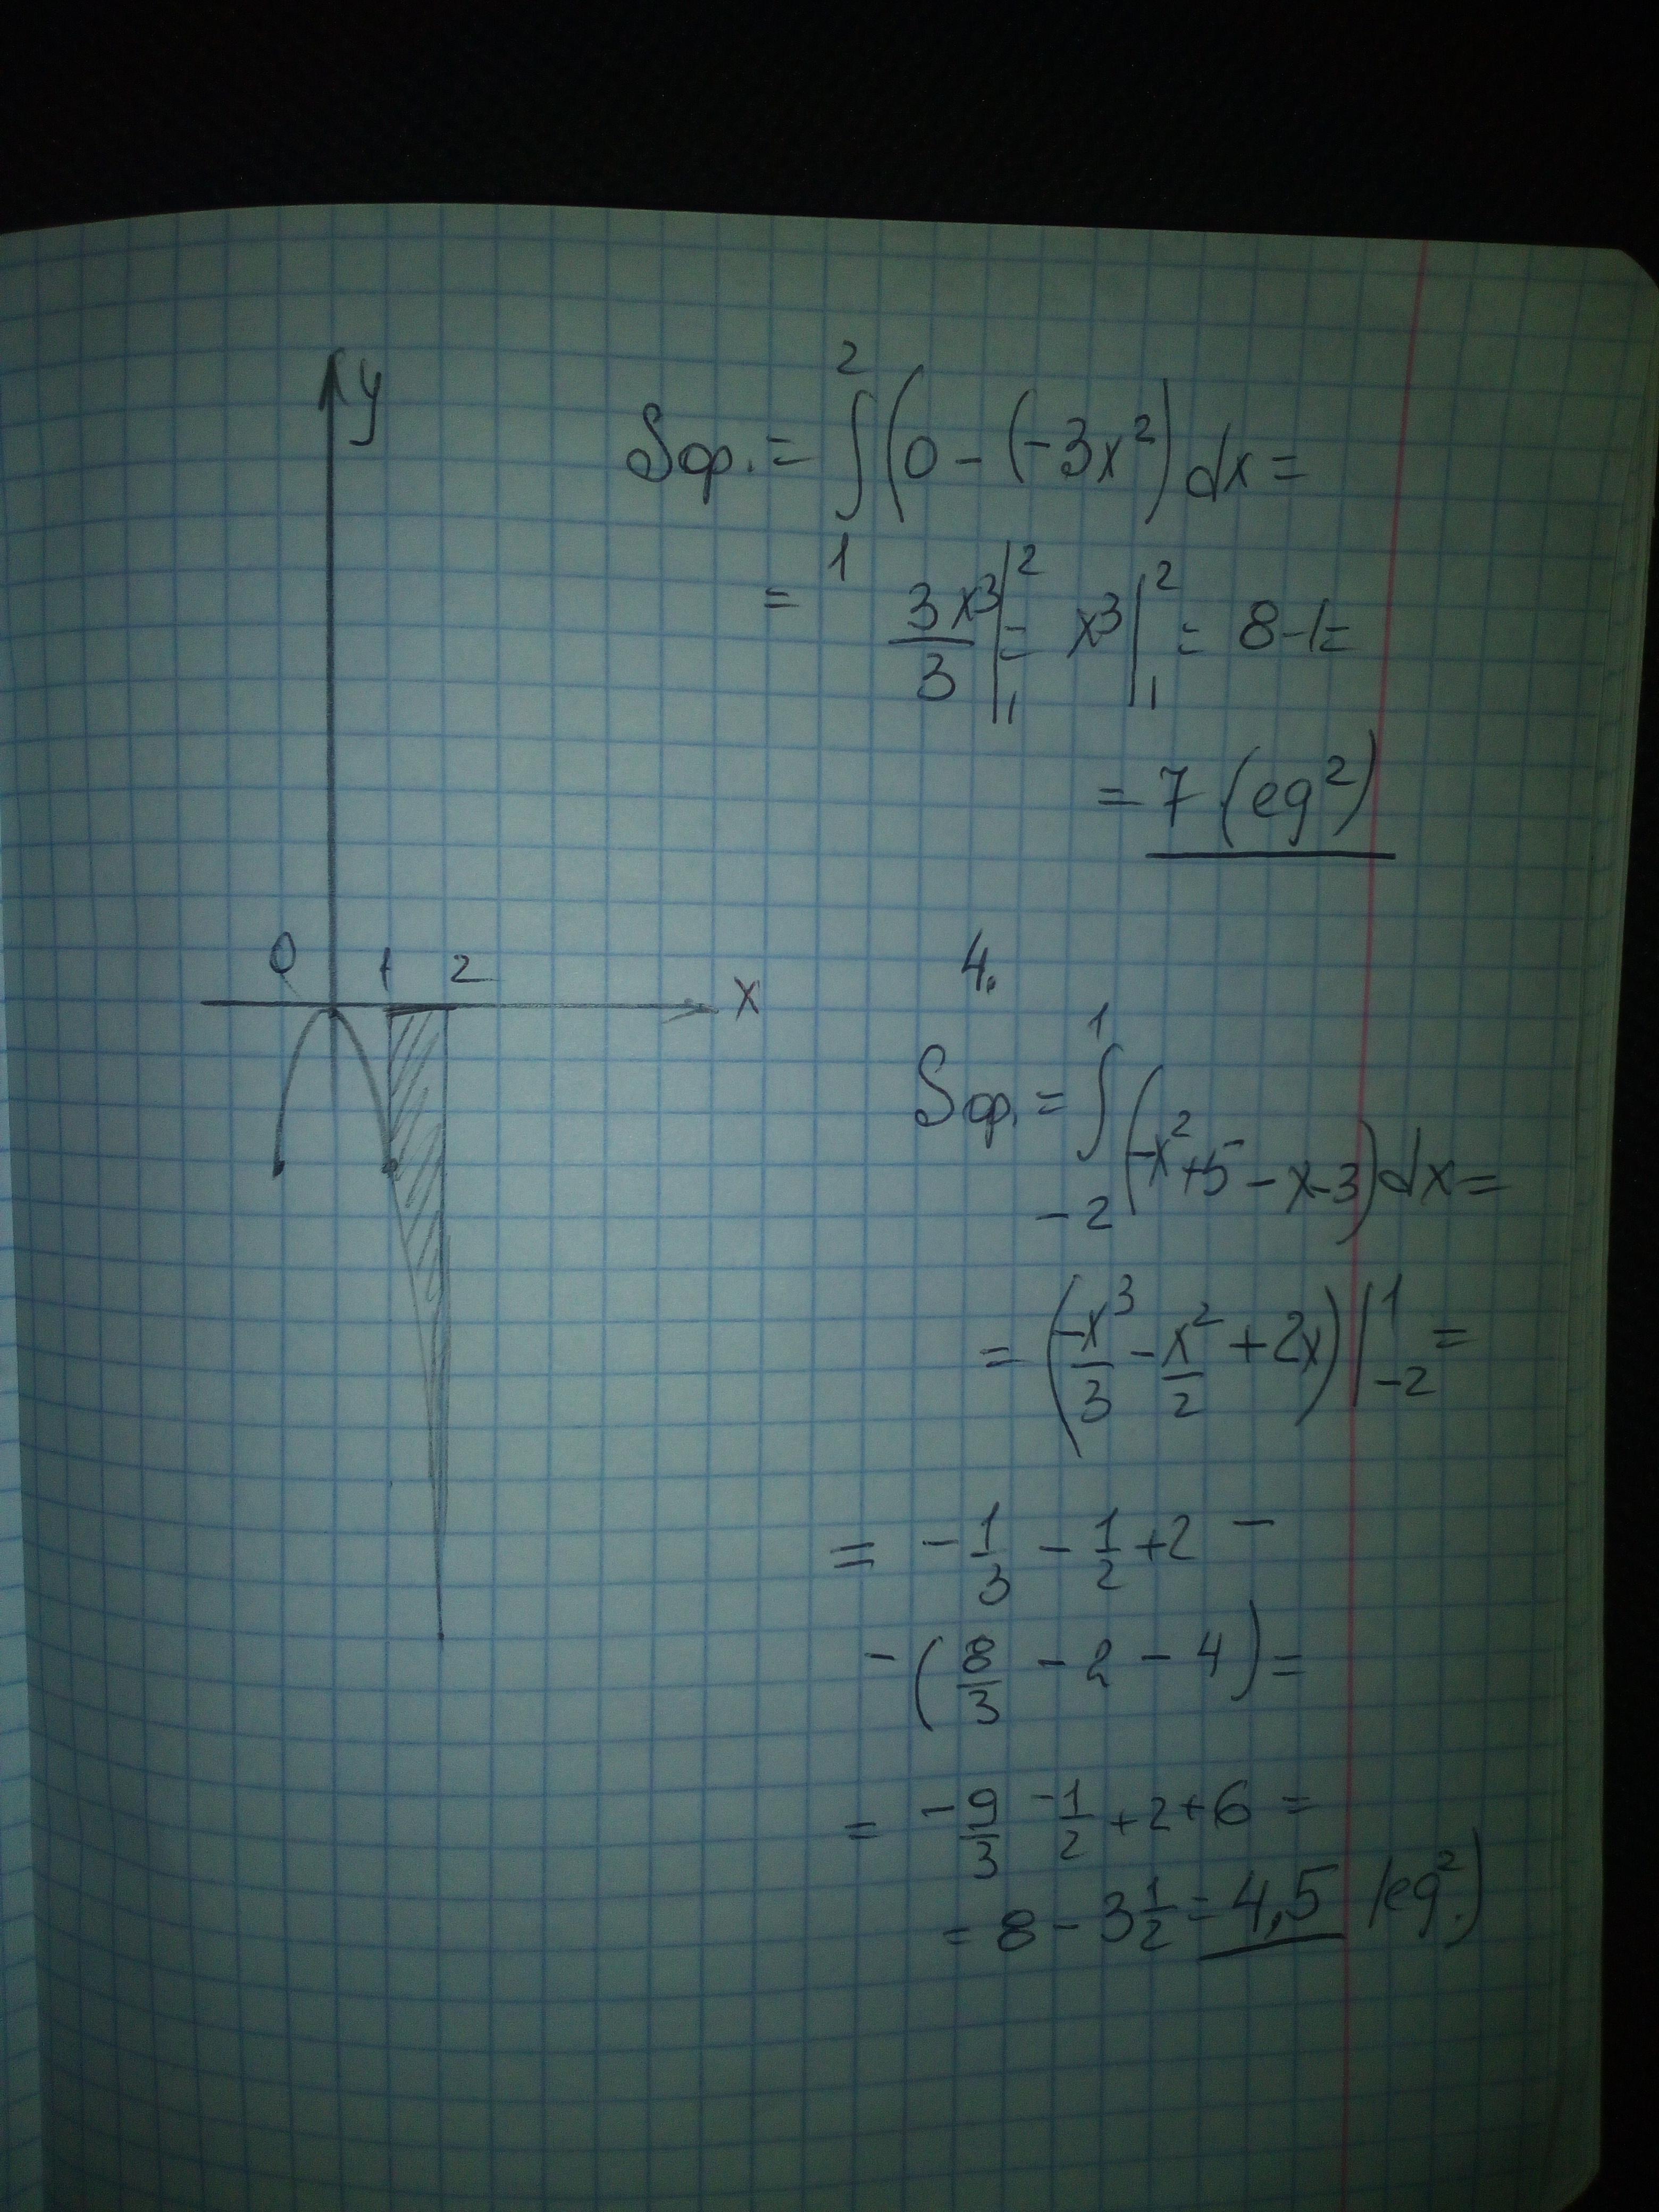 y
Sφ. = ∫₁² (0 - (-3x²) dx =
= 3x³/3 |₁² = x³ |₁² = 8-1=
= 7 (eg²)
0 1 2 x
4.
Sφ. = ∫₋₂¹ (-x²+5-x-3)dx =
= (-x³/3 - x²/2 + 2x) |₋₂¹ =
= -1/3 - 1/2 +2 -
- (8/3 - 2 - 4) =
= -9/3 -1/2 +2+6 =
= 8 - 3 1/2 = 4,5 (eg².)